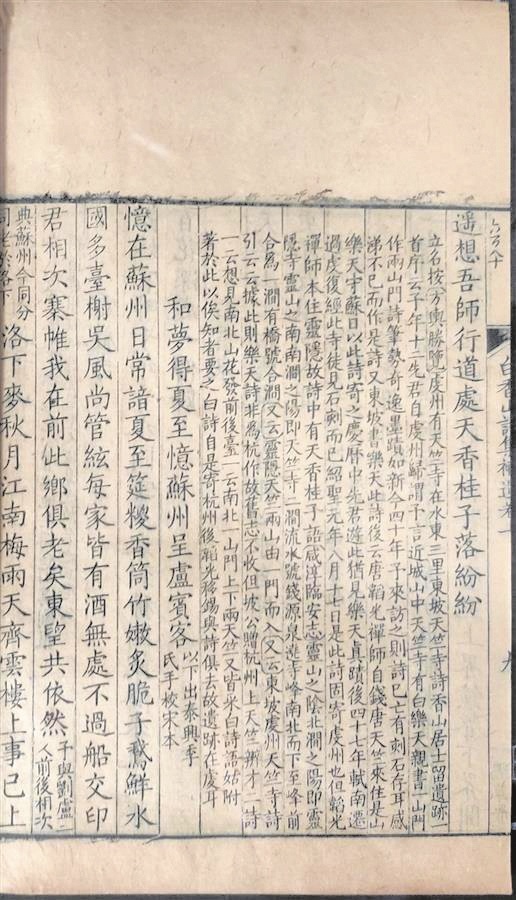 白香山詩集補遺卷一
九
遥想吾師行道處天香桂子落紛紛
立石按方輿勝覽虔州有天竺寺在水東三里東坡天竺寺詩香山居士留遺跡一
首序云予年十二先君自虔州歸謂予言近城山中天竺寺有白樂天親書一山門
作兩山門詩筆勢奇逸墨蹟如新今四十年予來訪之則詩已亡有刻石存耳感
涕不已而作是詩又東坡書樂天此詩後云唐韜光禪師自錢唐天竺來住是山
樂天守蘇日以此詩寄之慶曆中先君遊此猶見樂天真蹟後四十七年軾南遷
過虔復經此寺徒見石刻而已紹聖元年八月十七日是此詩固寄虔州也但韜光
禪師本住靈隱故詩中有天香桂子語咸淳臨安志靈山之陰北澗之陽即靈
隱寺靈山之南南澗之陽即天竺寺二澗流水號錢源泉遶寺峰南北而下至峰前
合為一澗有橋號合澗又云靈隱天竺兩山由一門而入又云東坡虔州天竺寺詩
引云云據此則樂天詩非為杭作故舊志不收但坡公贈杭州上天竺辨才二詩
一云想見南北山花發前後臺一云南北一山門上下兩天竺又皆采白詩語姑附
著於此以俟知者要之白詩自是寄杭州後韜光移錫與詩俱去故遺跡在虔耳
和夢得夏至憶蘇州呈盧賓客以下出泰興季
氏手校宋本
憶在蘇州日常諳夏至筵糉香筒竹嫩炙脆子鵝鮮水
國多臺榭吳風尚管絃每家皆有酒無處不過船交印
君相次褰帷我在前此鄉俱老矣東望共依然予與劉盧二
人前後相次
典蘇州今同分
司老於洛下洛下麥秋月江南梅雨天齊雲樓上事已上